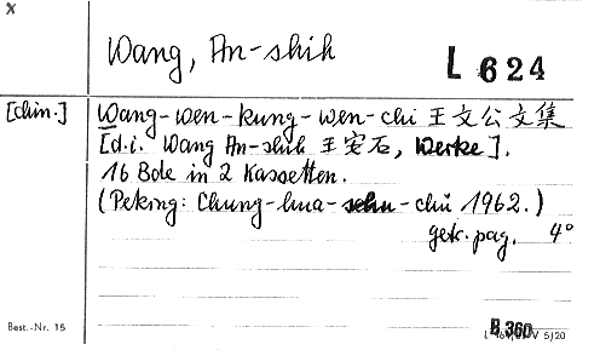 x
Wang, An-shih
L 624
[chin.] Wang-wen-kung-wen-chi 王文公文集
[d.i. Wang An-shih 王安石, Werke].
16 Bde in 2 Kassetten.
(Peking: Chung-hua-schu-chü 1962.)
getr. pag. 4°
Best.-Nr. 15
B.360
V 5/20